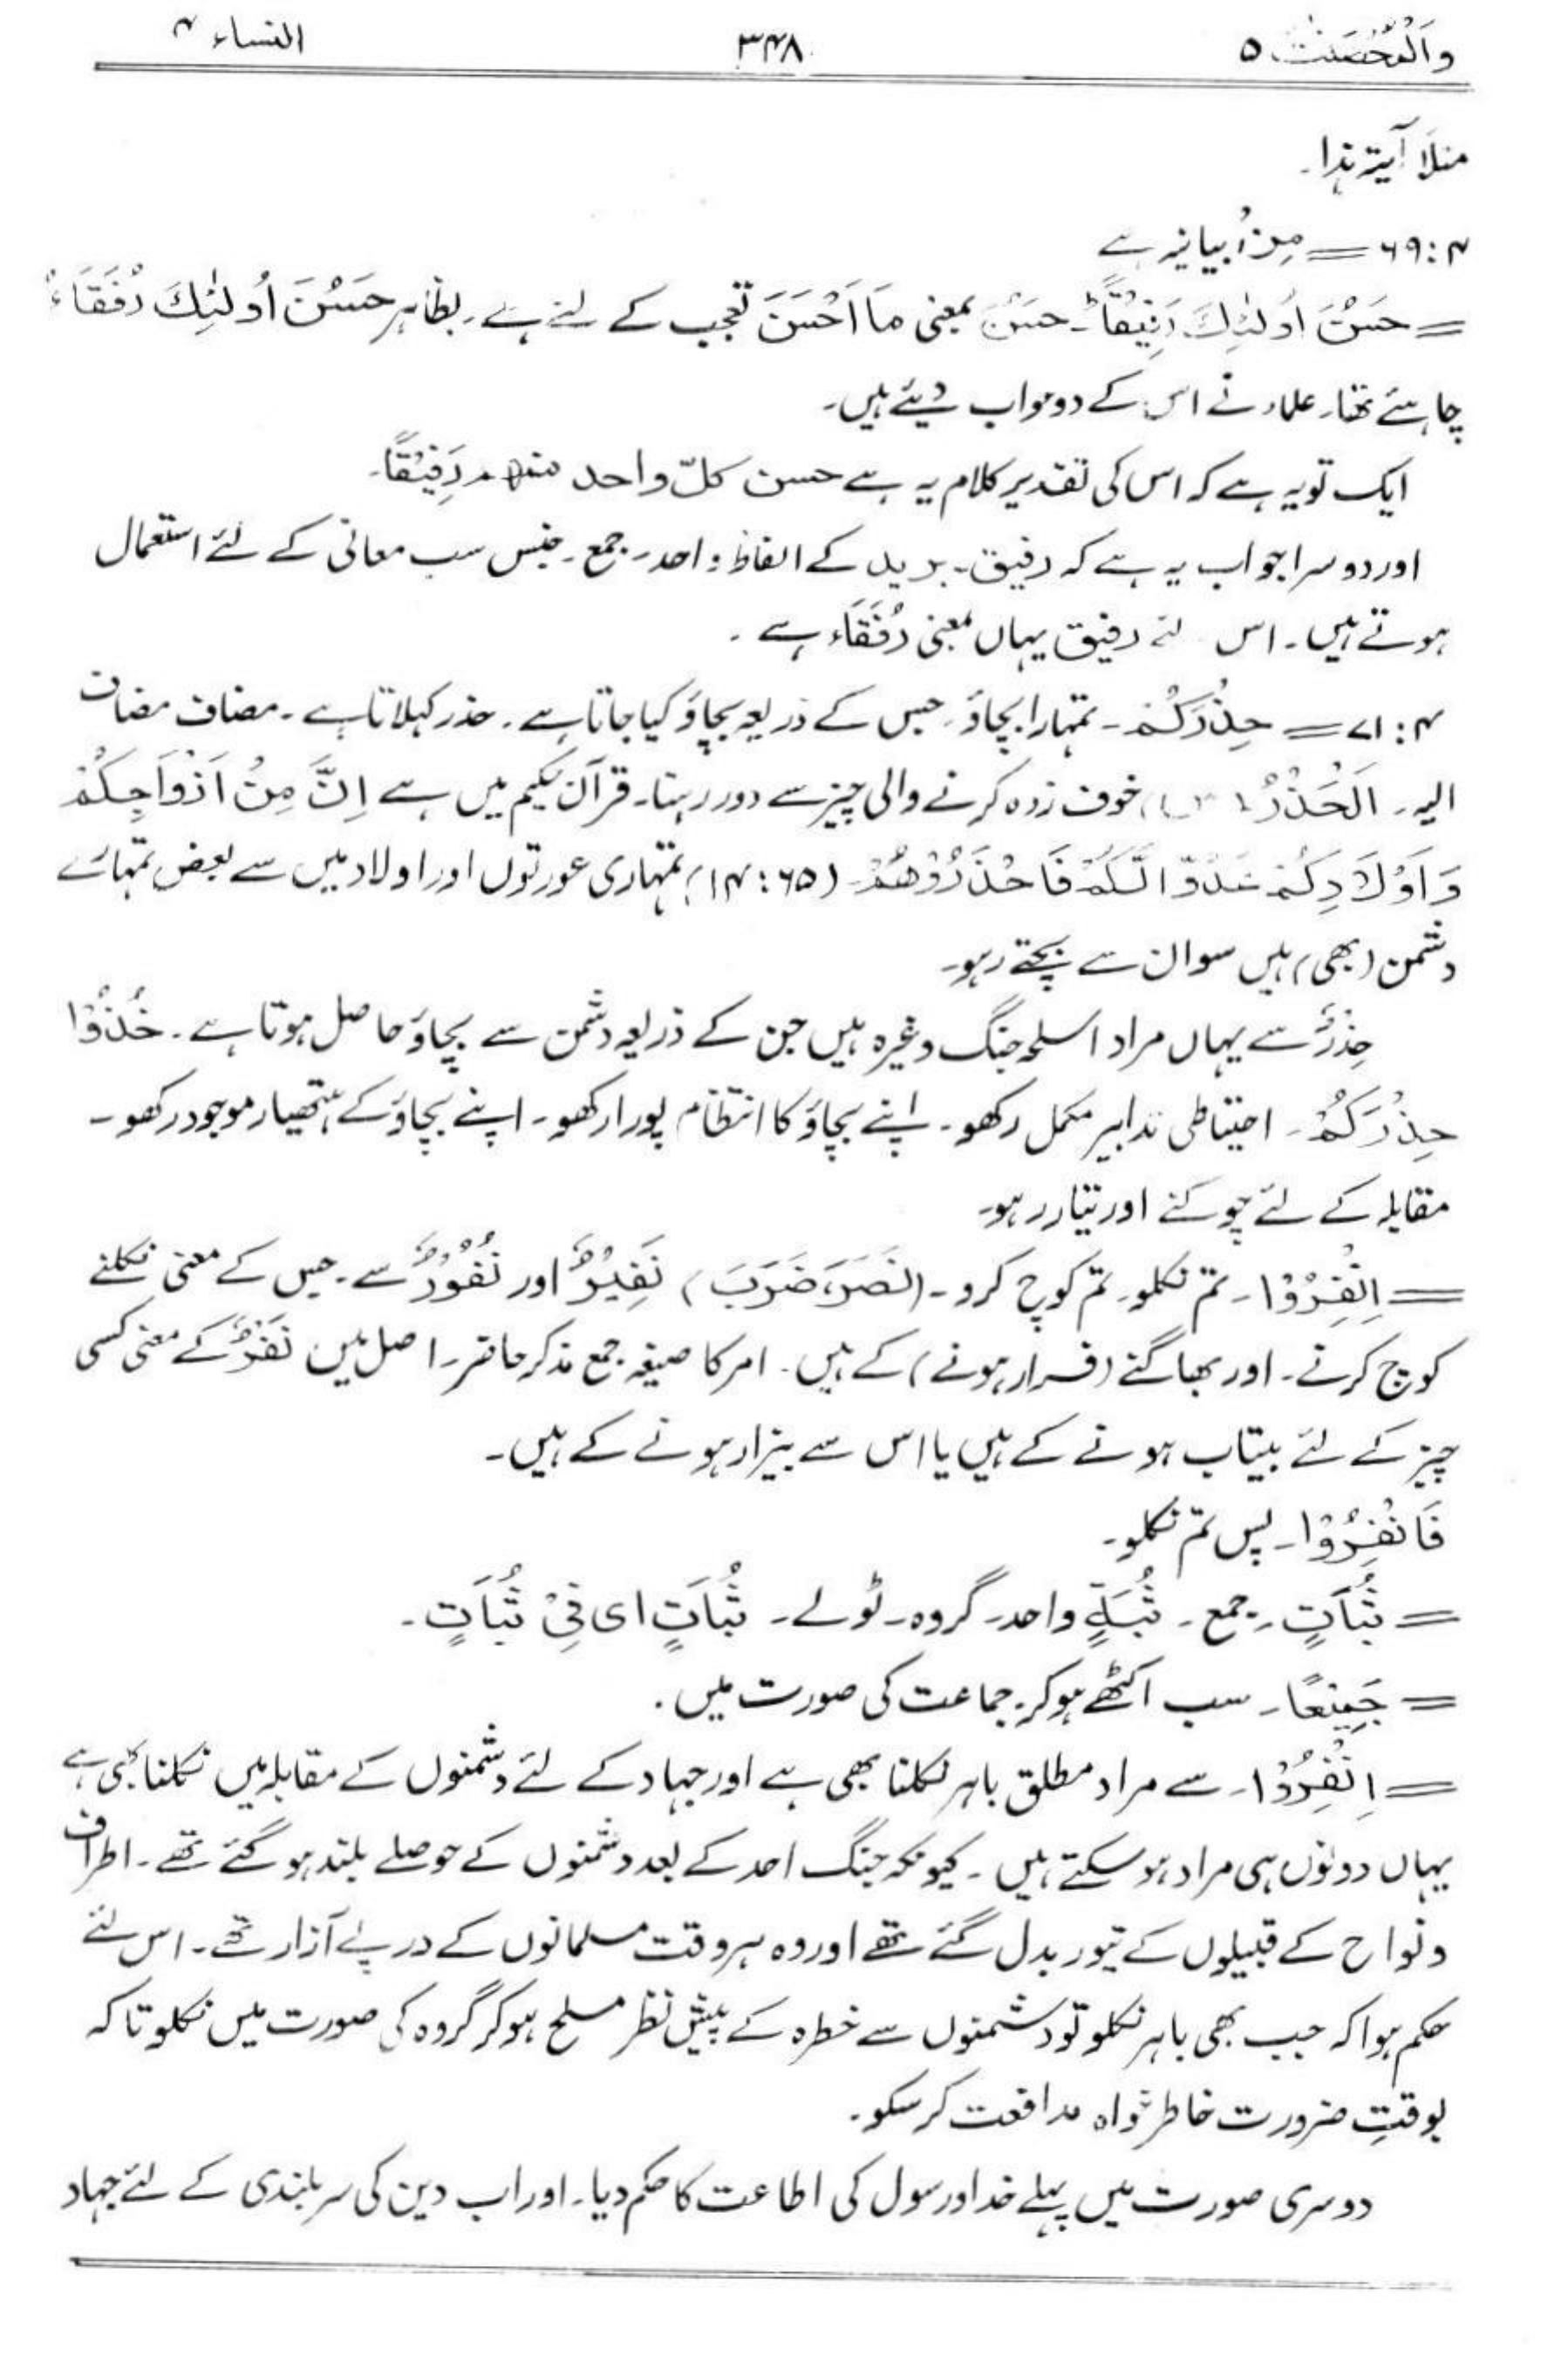 وَالْمُحْصَنٰتُ ۵ ۳۴۸ النساء ۴
مثلاً آیۃ ہذا۔
۴ : ۶۹ = مِنْ بیانیہ ہے
= حَسُنَ اُولٰٓئِكَ رَفِيْقًا۔ حَسُنَ بمعنی مَا اَحْسَنَ تعجب کے لئے ہے۔ بظاہر حَسُنَ اُولٰٓئِكَ رُفَقَاءَ
چاہئے تھا۔ علماء نے اس کے دو جواب دیئے ہیں۔
ایک تو یہ ہے کہ اس کی تقدیر کلام یہ ہے حسن کلّ واحد منھم رَفِيْقًا۔
اور دوسرا جواب یہ ہے کہ رفیق۔ برید کے الفاظ واحد۔ جمع۔ جنس سب معانی کے لئے استعمال
ہوتے ہیں۔ اس لئے رفیق یہاں بمعنی رُفَقَاء ہے۔
۴ : ۷۱ = حِذْرَكُمْ۔ تمہارا بچاؤ۔ جس کے ذریعہ بچاؤ کیا جاتا ہے۔ حذر کہلاتا ہے۔ مضاف مضاف
الیہ۔ اَلْحَذَرُ (س) خوف زدہ کرنے والی چیز سے دور رہنا۔ قرآن حکیم میں ہے اِنَّ مِنْ اَزْوَاجِكُمْ
وَ اَوْلَادِكُمْ عَدُوًّا لَّكُمْ فَاحْذَرُوْهُمْ۔ (۶۵ : ۱۴) تمہاری عورتوں اور اولاد میں سے بعض تمہارے
دشمن (بھی) ہیں سو ان سے بچتے رہو۔
حِذْرٌ سے یہاں مراد اسلحہ جنگ وغیرہ ہیں جن کے ذریعہ دشمن سے بچاؤ حاصل ہوتا ہے۔ خُذُوْا
حِذْرَكُمْ۔ احتیاطی تدابیر مکمل رکھو۔ اپنے بچاؤ کا انتظام پورا رکھو۔ اپنے بچاؤ کے ہتھیار موجود رکھو۔
مقابلہ کے لئے چوکنے اور تیار رہو۔
= اِنْفِرُوْا۔ تم نکلو۔ تم کوچ کرو۔ (نَصَرَ، ضَرَبَ) نَفِيْرٌ اور نُفُوْرٌ سے۔ جس کے معنی نکلنے
کوچ کرنے۔ اور بھاگنے (فرار ہونے) کے ہیں۔ امر کا صیغہ جمع مذکر حاضر۔ اصل میں نَفْرٌ کے معنی کسی
چیز کے لئے بیتاب ہونے کے ہیں یا اس سے بیزار ہونے کے ہیں۔
فَانْفِرُوْا۔ پس تم نکلو۔
= ثُبَاتٍ۔ جمع۔ ثُبَةٍ واحد۔ گروہ۔ ٹولے۔ ثُبَاتٍ ای فِیْ ثُبَاتٍ۔
= جَمِيْعًا۔ سب اکٹھے ہو کر۔ جماعت کی صورت میں۔
= اِنْفِرُوْا۔ سے مراد مطلق باہر نکلنا بھی ہے اور جہاد کے لئے دشمنوں کے مقابلہ میں نکلنا بھی ہے
یہاں دونوں ہی مراد ہو سکتے ہیں۔ کیونکہ جنگ احد کے بعد دشمنوں کے حوصلے بلند ہو گئے تھے۔ اطراف
و نواح کے قبیلوں کے تیور بدل گئے تھے اور وہ ہر وقت مسلمانوں کے درپے آزار تھے۔ اس لئے
حکم ہوا کہ جب بھی باہر نکلو تو دشمنوں سے خطرہ کے پیش نظر مسلح ہو کر گروہ کی صورت میں نکلو تاکہ
بوقتِ ضرورت خاطر خواہ مدافعت کر سکو۔
دوسری صورت میں پہلے خدا و رسول کی اطاعت کا حکم دیا۔ اور اب دین کی سربلندی کے لئے جہاد